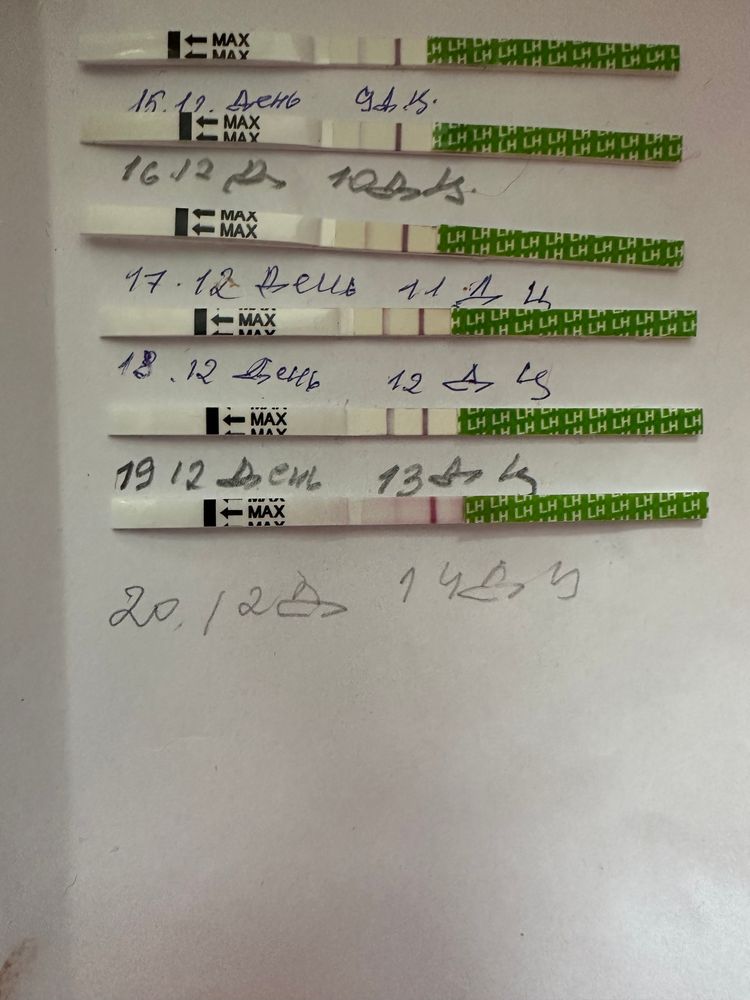 MAX
MAX
LH LH LH LH LH LH LH LH LH
15.12. День 9 Д Ц.
MAX
MAX
LH LH LH LH LH LH LH LH LH
16.12 Д 10 Д Ц.
MAX
MAX
LH LH LH LH LH LH LH LH LH
17.12 День 11 Д Ц
MAX
LH LH LH LH LH LH LH LH LH
18.12 День 12 Д Ц
MAX
LH LH LH LH LH LH LH LH LH
19 12 День 13 Д Ц
MAX
LH LH LH LH LH LH LH LH LH
20.12 Д 14 Д Ц